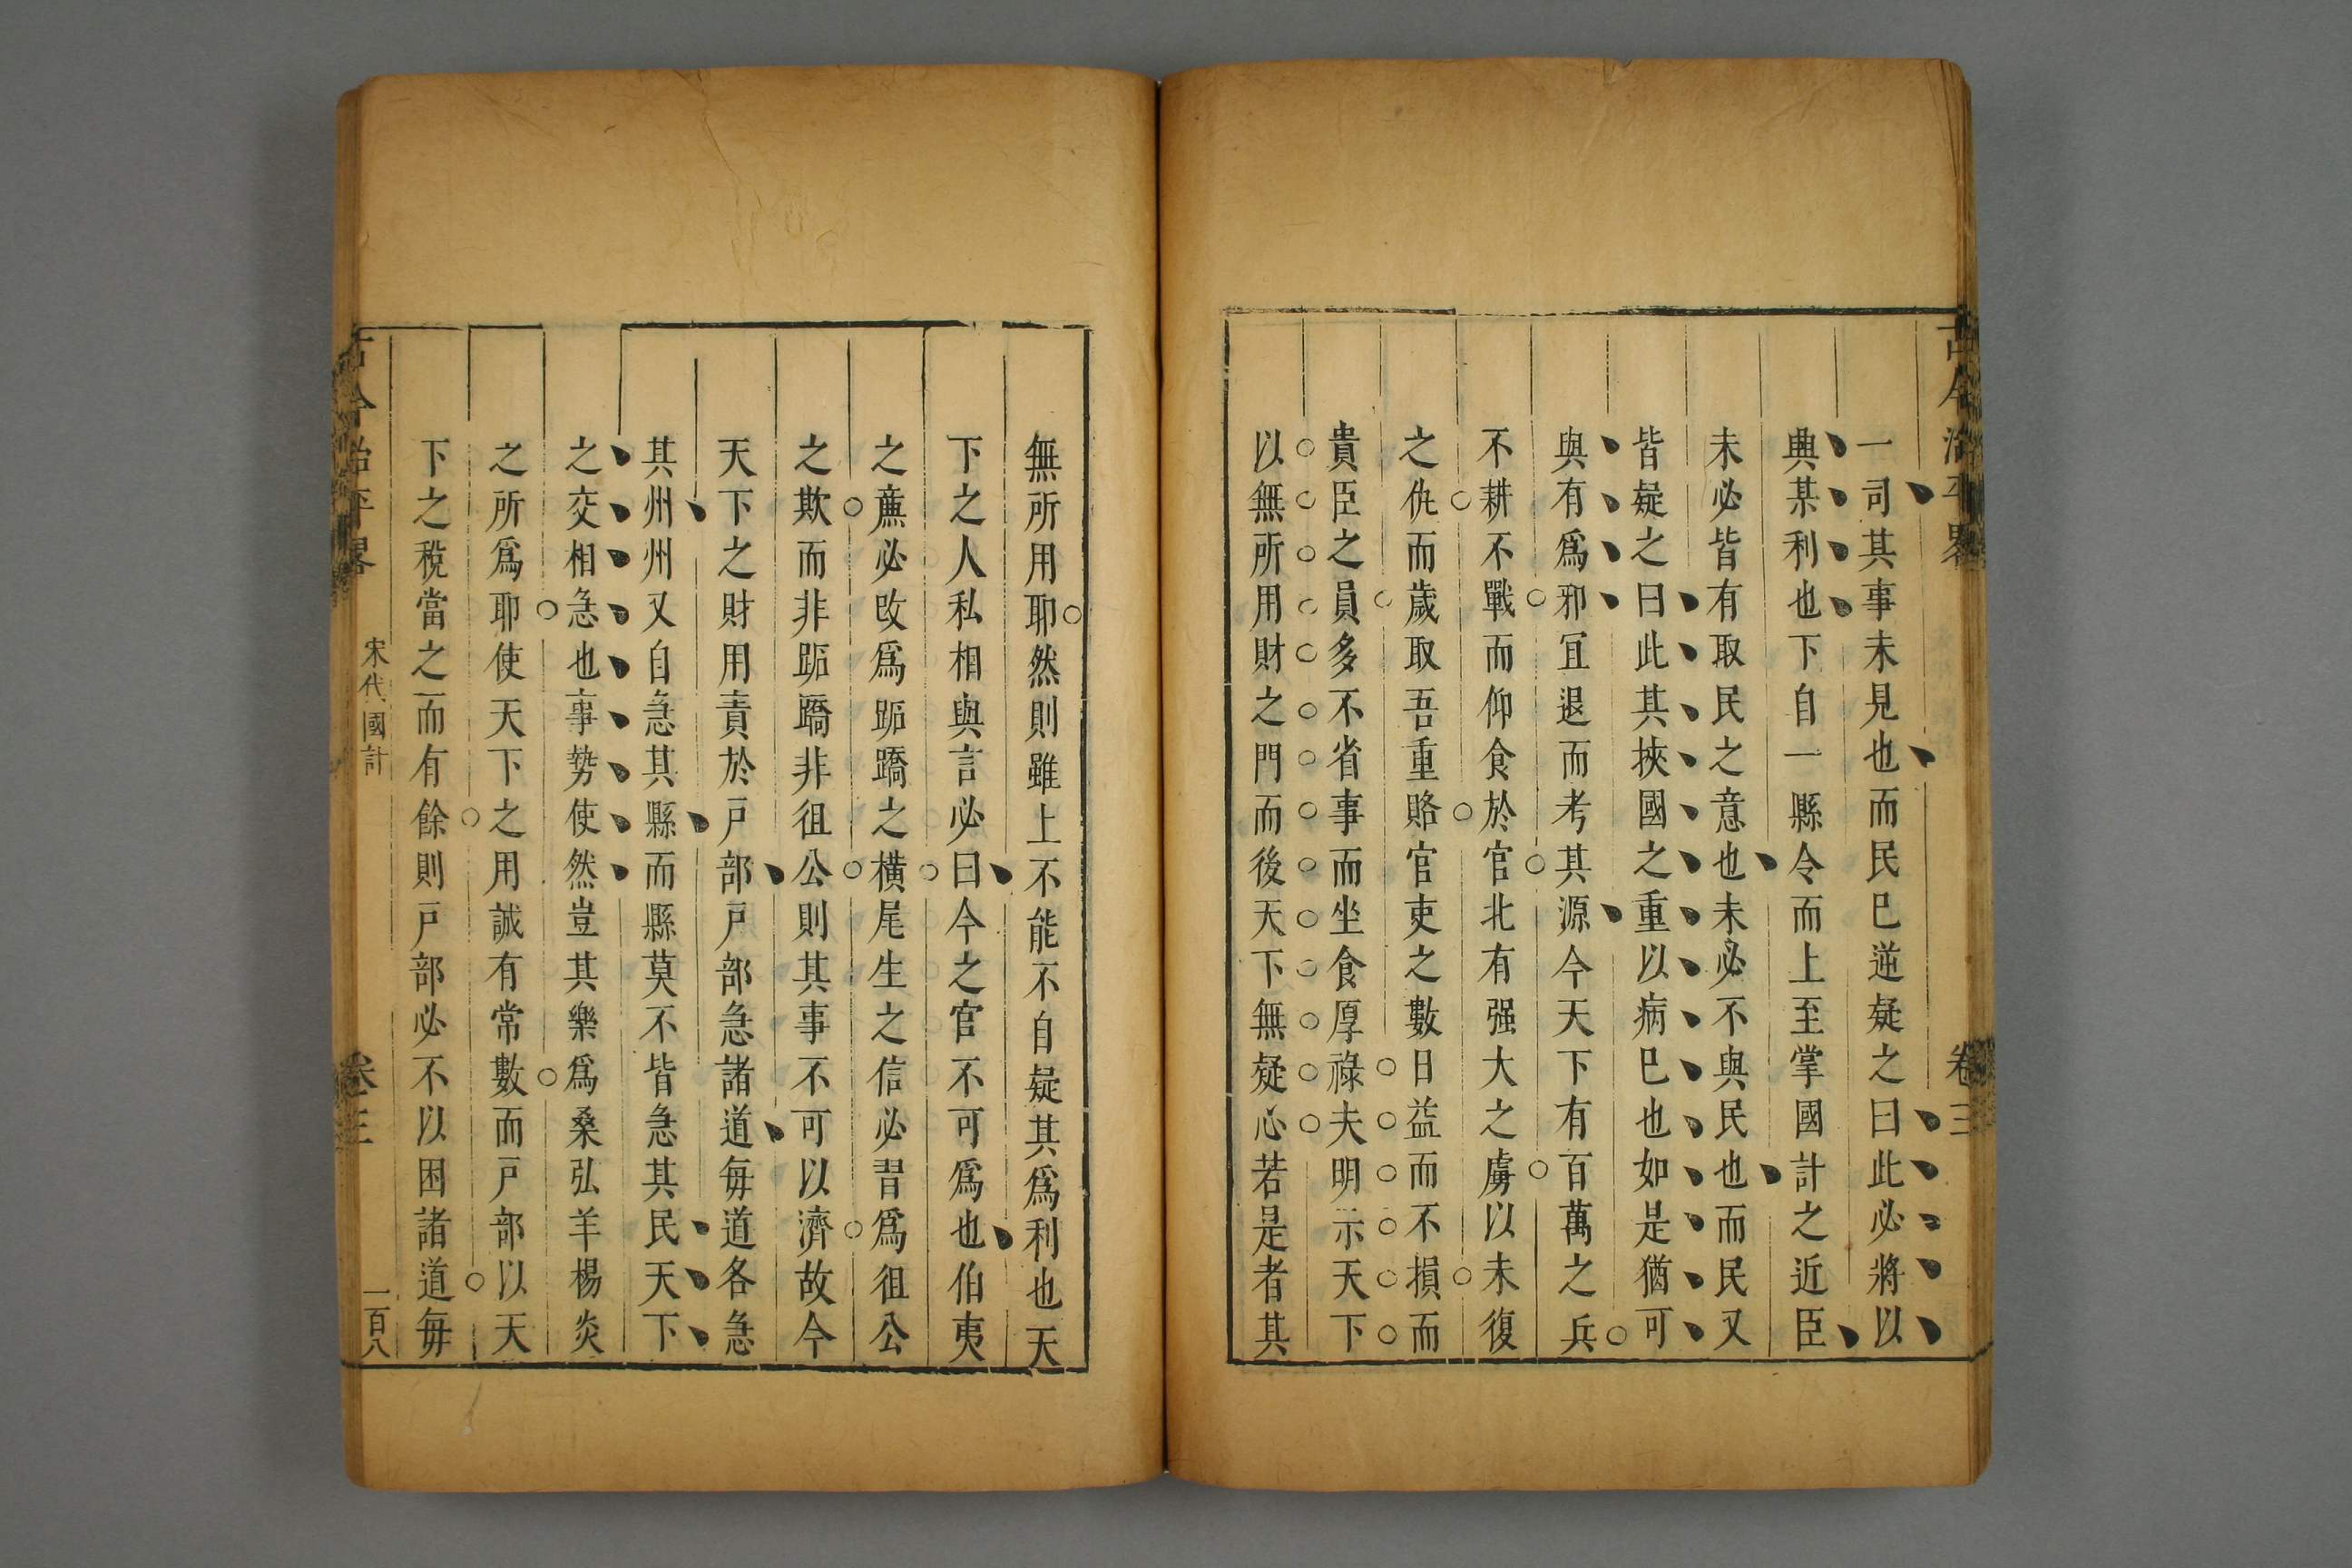 古今治平畧 卷三
一司其事未見也而民巳逆疑之曰此必將以
興某利也下自一縣令而上至掌國計之近臣
未必皆有取民之意也未必不與民也而民又
皆疑之曰此其挾國之重以病巳也如是猶可
與有爲邪宜退而考其源今天下有百萬之兵
不耕不戰而仰食於官北有强大之虜以未復
之仇而歲取吾重賂官吏之數日益而不損而
貴臣之員多不省事而坐食厚祿夫明示天下
以無所用財之門而後天下無疑心若是者其
無所用耶然則雖上不能不自疑其爲利也天
下之人私相與言必曰今之官不可爲也伯夷
之亷必改爲跖蹻之橫尾生之信必習爲徂公
之欺而非跖蹻非徂公則其事不可以濟故今
天下之財用責於戸部戸部急諸道每道各急
其州州又自急其縣而縣莫不皆急其民天下
之交相急也事勢使然豈其樂爲桑弘羊楊炎
之所爲耶使天下之用誠有常數而戸部以天
下之稅當之而有餘則戸部必不以困諸道每
古今治平畧 宋代國計 卷三 一百八